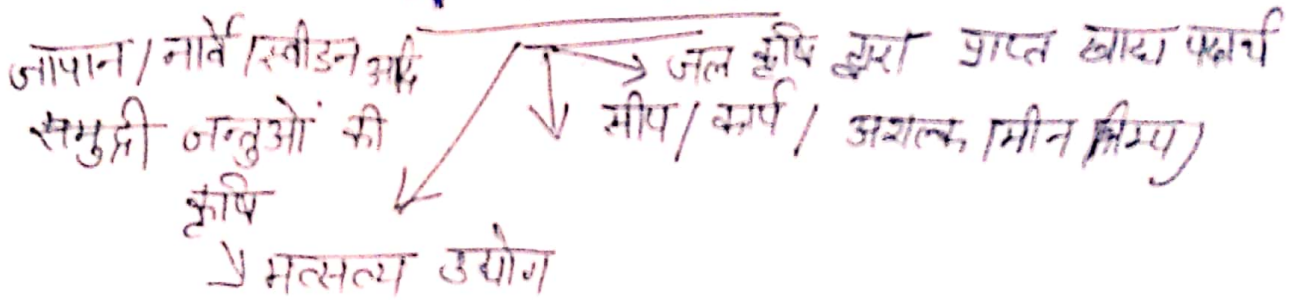 जापान / नार्वे / स्वीडन आदि
समुद्री जन्तुओं की
कृषि
मत्सत्य उद्योग
जल कृषि द्वारा प्राप्त खाद्य पदार्थ
सीप / कार्प / अशल्क मीन